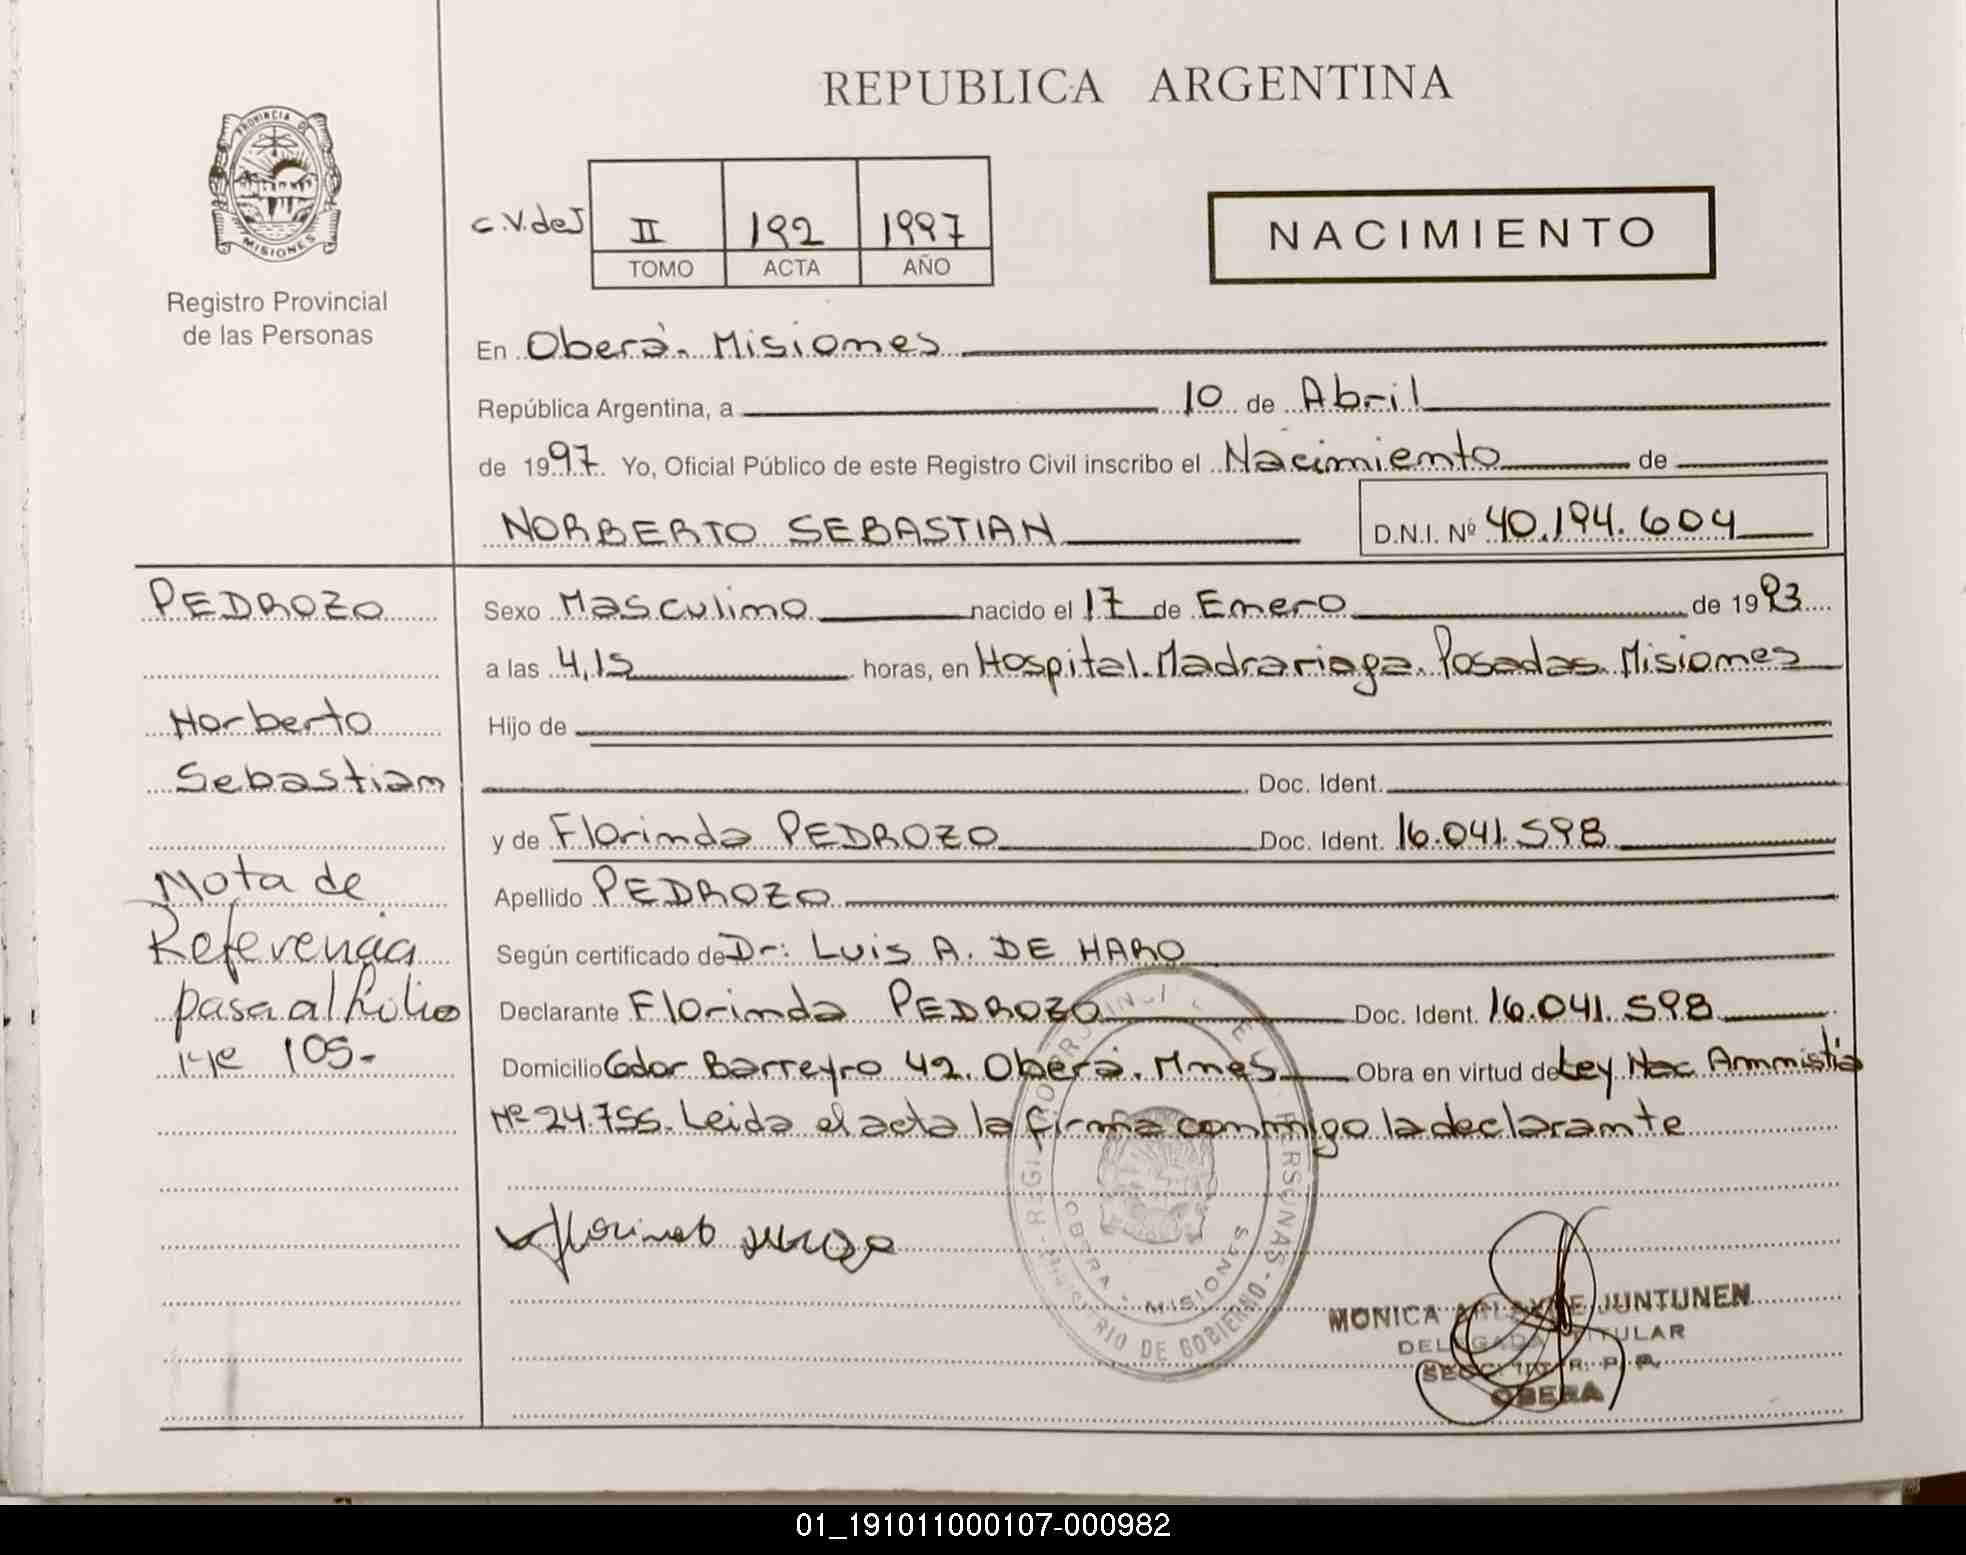 REPUBLICA ARGENTINA
PROVINCIA DE
MISIONES
Registro Provincial
de las Personas
C.V.deJ
II 192 1997
TOMO ACTA AÑO
NACIMIENTO
En Oberà. Misiones
República Argentina, a 10 de Abril
de 1997. Yo, Oficial Público de este Registro Civil inscribo el Nacimiento de
NORBERTO SEBASTIAN D.N.I. Nº 40.194.604
PEDROZO
Norberto
Sebastian
Nota de
Referencia
pasa al folio
Nº 105-
Sexo Masculino nacido el 17 de Enero de 1993
a las 4,15 horas, en Hospital. Madrariaga. Posadas. Misiones
Hijo de
Doc. Ident.
y de Florinda PEDROZO Doc. Ident. 16.041.598
Apellido PEDROZO
Según certificado de Dr: Luis A. DE HARO
Declarante Florinda PEDROZO Doc. Ident. 16.041.598
Domicilio Gdor Barreyro 42. Oberà. Mnes Obra en virtud de Ley Nac Ammistia
Nº 24.755. Leida el acta la firma conmigo la declarante
OBERA - MISIONES
MINISTERIO DE GOBIERNO - PERSONAS
MONICA DE JUNTUNEN
DELEGADA TITULAR
R. P. P.
OBERA
01_191011000107-000982